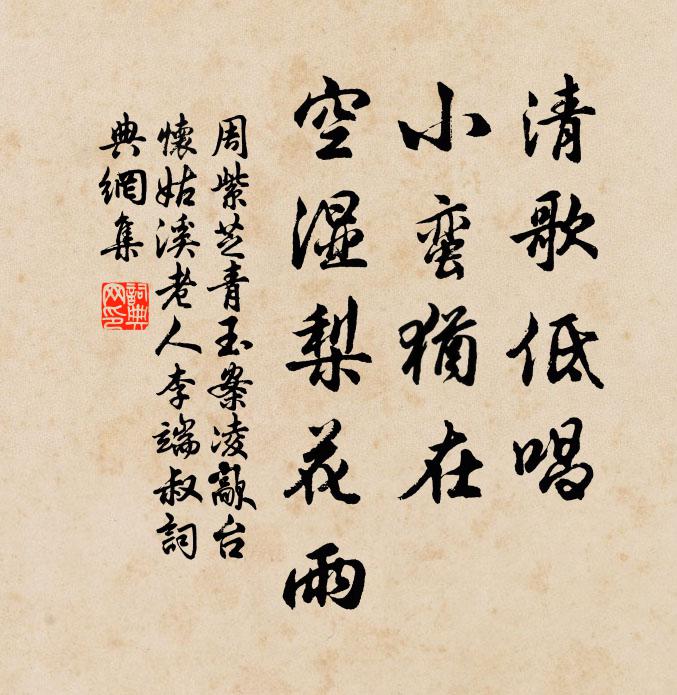 清歌低唱
小蛮猶在
空濕梨花雨
周紫芝青玉案凌歊台
懷姑溪老人李端叔詞
典網集
詞典网印